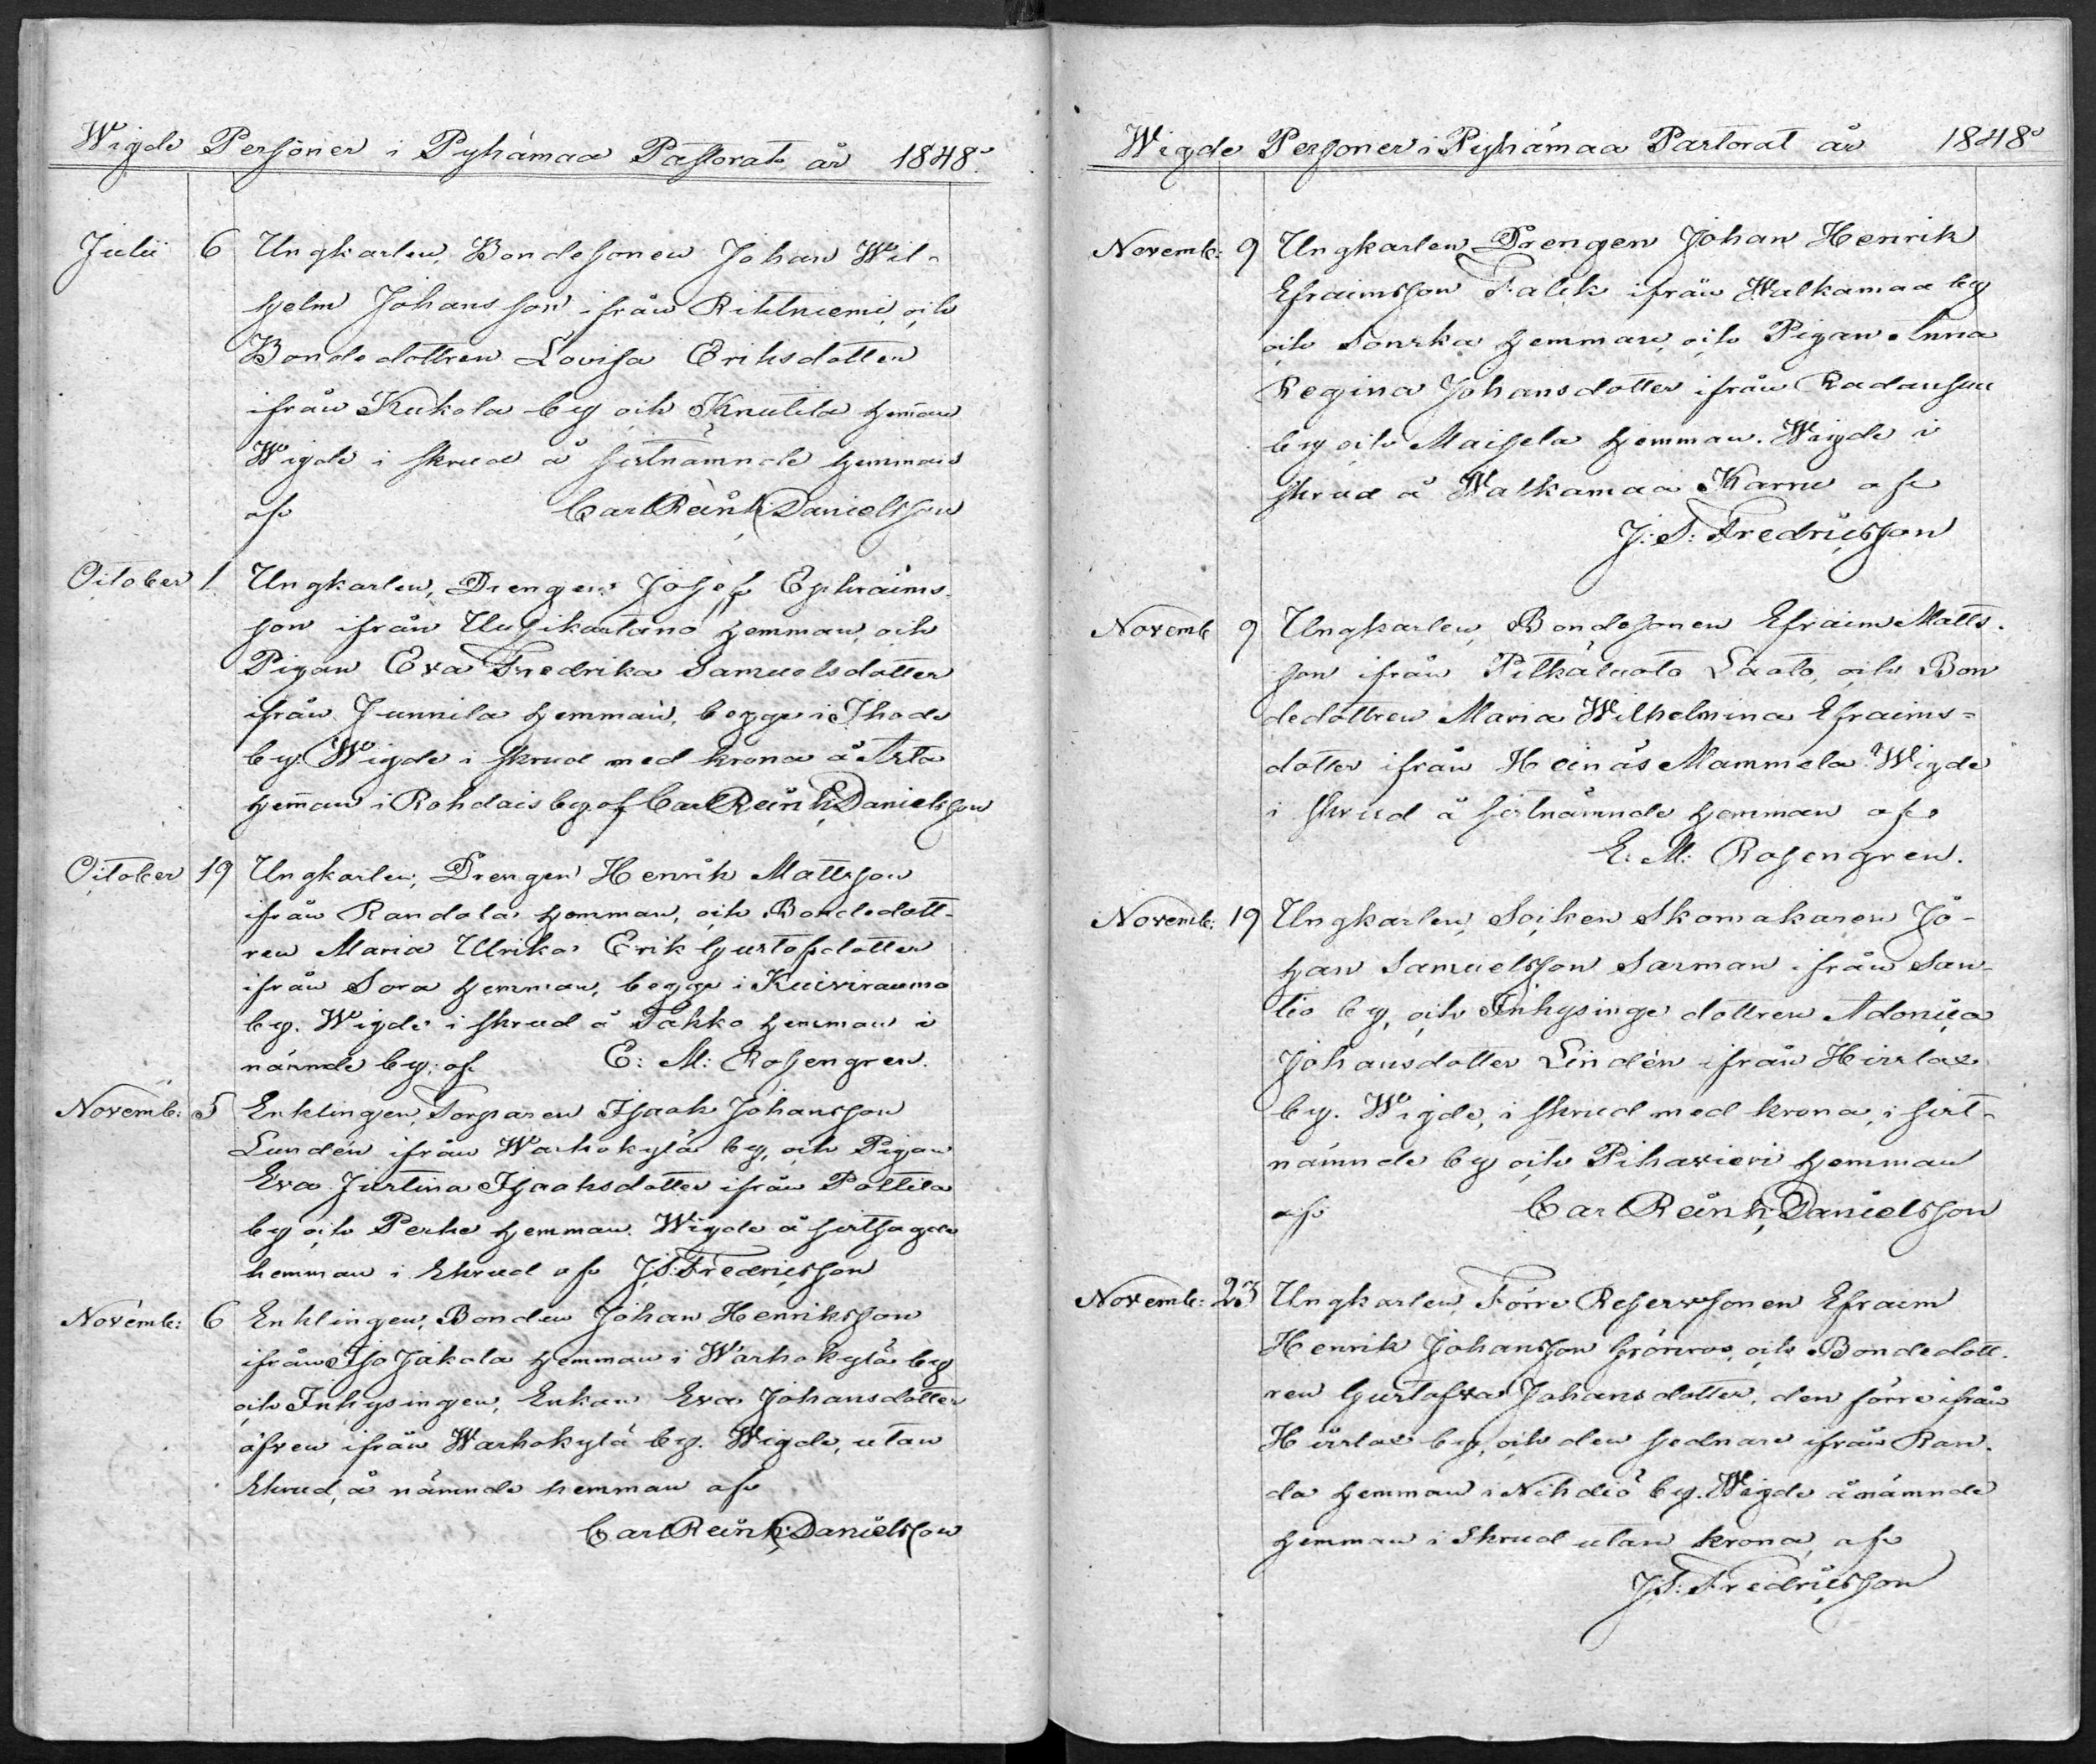 Wigde Personer i Pyhämaa Pastorat år 1848.
Julii 6 Ungkarlen, Bondesonen Johan Wil-
helm Johansson ifrån Rihtniemi, och
Bondedottren Lovisa Eriksdotter
ifrån Kukola by och Knutila hemman
Wigde i skrud å sistnämnde hemman
af Carl Reinh. Danielsson
October 1. Ungkarlen, Drengen Josef Ephraims-
son ifrån Uusikartano hemman, och
Pigan Eva Fredrika Samuelsdotter
ifrån Junnila hemman, begge i Ihode
by. Wigde i skrud med krona å Arta
hemman i Rohdais by. af Carl Reinh. Danielsson
October 19 Ungkarlen, Drengen Henrik Mattsson
ifrån Randala hemman, och Bondedott-
ren Maria Ulrika Erik Gustafsdotter
ifrån Sora hemman, begge i Kuivirauma
by. Wigde i skrud å Tahko hemman i
nämnde by; af E: M: Rosengren.
Novemb: 5 Enklingen, Torparen Isaak Johansson
Lundén ifrån Warhokylä by, och Pigan
Eva Justina Isaaksdotter ifrån Polttila
by och Perhe hemman. Wigde å sistsagde
hemman i skrud af J.S: Fredricsson
Novemb: 6 Enklingen, Bonden Johan Henriksson
ifrån Iso Jakola hemman i Warhokylä by
och Inhysingen, Enkan Eva Johansdotter
äfven ifrån Warhokylä by. Wigde, utan
skrud, å nämnde hemman af
Carl Reinh. Danielsson
Wigde Personer i Pyhämaa Pastorat år 1848
Novemb: 9 Ungkarlen, Drengen Johan Henrik
Efraimsson Falck ifrån Walkamaa by
och hemman, och Pigan Anna
Regina Johansdotter ifrån Radansuu
by och Maisela hemman. Wigde i
skrud å Walkamaa Karru af
J: S: Fredricsson
Novemb 9 Ungkarlen, Bondesonen Efraim Matts-
son ifrån Pitkäluoto Laoto, och Bon
dedottren Maria Wilhelmina Efraims-
dotter ifrån Heinäs Mammela. Wigde
i skrud å sistnämnde hemman af
E: M: Rosengren.
Novemb: 19 Ungkarlen, Socken Skomakaren Jo-
han Samuelsson Sarman ifrån San-
tio by, och Inhysinge dottren Adonica
Johansdotter Lindén ifrån Hirslax
by. Wigde, i skrud med krona, i sist-
nämnde by och Pihavieri hemman
af Carl Reinh. Danielsson
Novemb: 23 Ungkarlen, Förre Reservsonen Efraim
Henrik Johansson Grönroos, och Bondedott-
ren Gustafva Johansdotter, den förre ifrån
Hirslax by, och den sednare ifrån Ran-
da hemman i Nihdiö by. Wigde å nämnde
hemman i Skrud utan krona af
J.S: Fredricsson